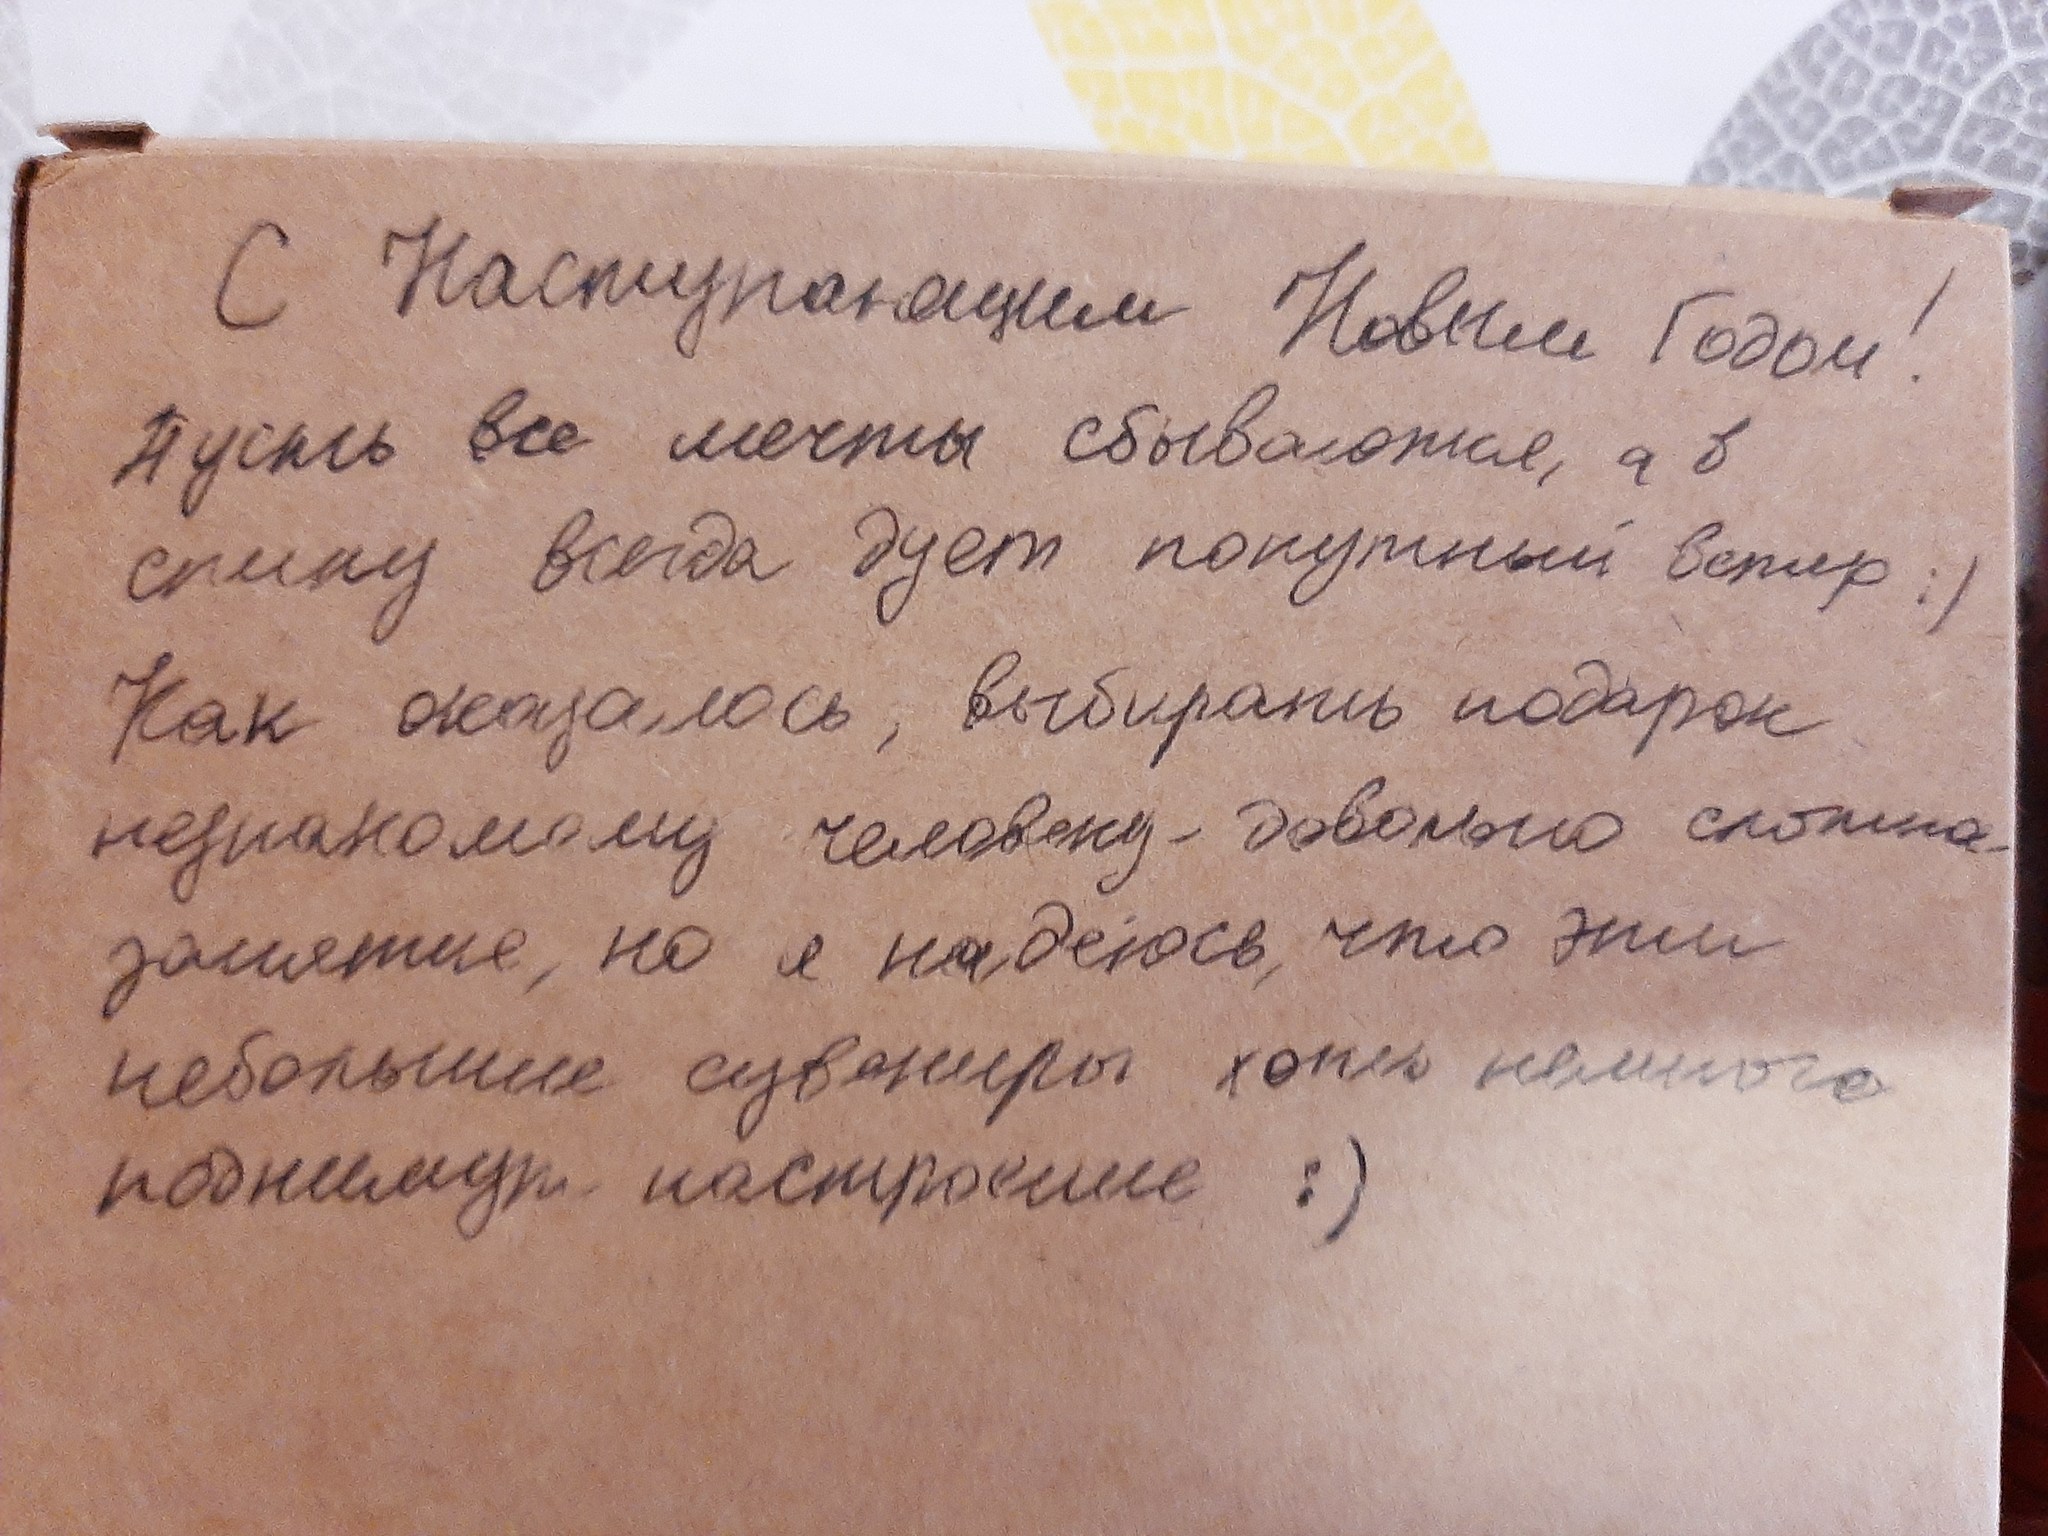 С Наступающим Новым Годом!
Пусть все мечты сбываются, а в
спину всегда дует попутный ветер :)
Как оказалось, выбирать подарок
незнакомому человеку - довольно сложно-
занятие, но я надеюсь, что эти
небольшие сувениры хоть немного
поднимут настроение :)